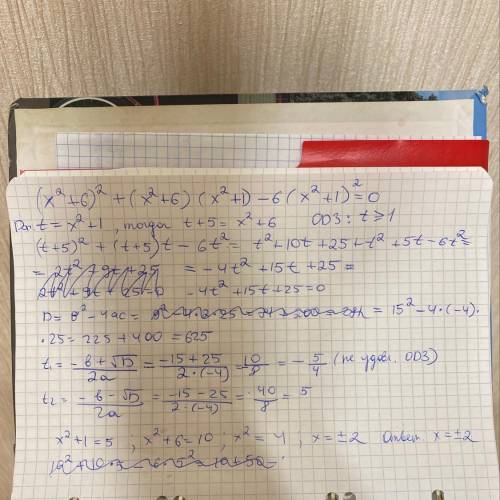 (x²+6)² + (x²+6)(x²+1) - 6(x²+1)² = 0
t = x²+1, тогда t+5 = x²+6 ОДЗ: t ≥ 1
(t+5)² + (t+5)t - 6t² = t²+10t+25+t²+5t-6t² =
= -4t²+15t+25 =
-4t²+15t+25=0
D = b²-4ac = = 15²-4·(-4)·
·25 = 225+400 = 625
t₁ = (-b+√D)/2a = (-15+25)/(2·(-4)) = 10/8 = -5/4 (не удовл. ОДЗ)
t₂ = (-b-√D)/2a = (-15-25)/(2·(-4)) = 40/8 = 5
x²+1=5; x²+6=10; x²=4, x=±2 Ответ: x=±2